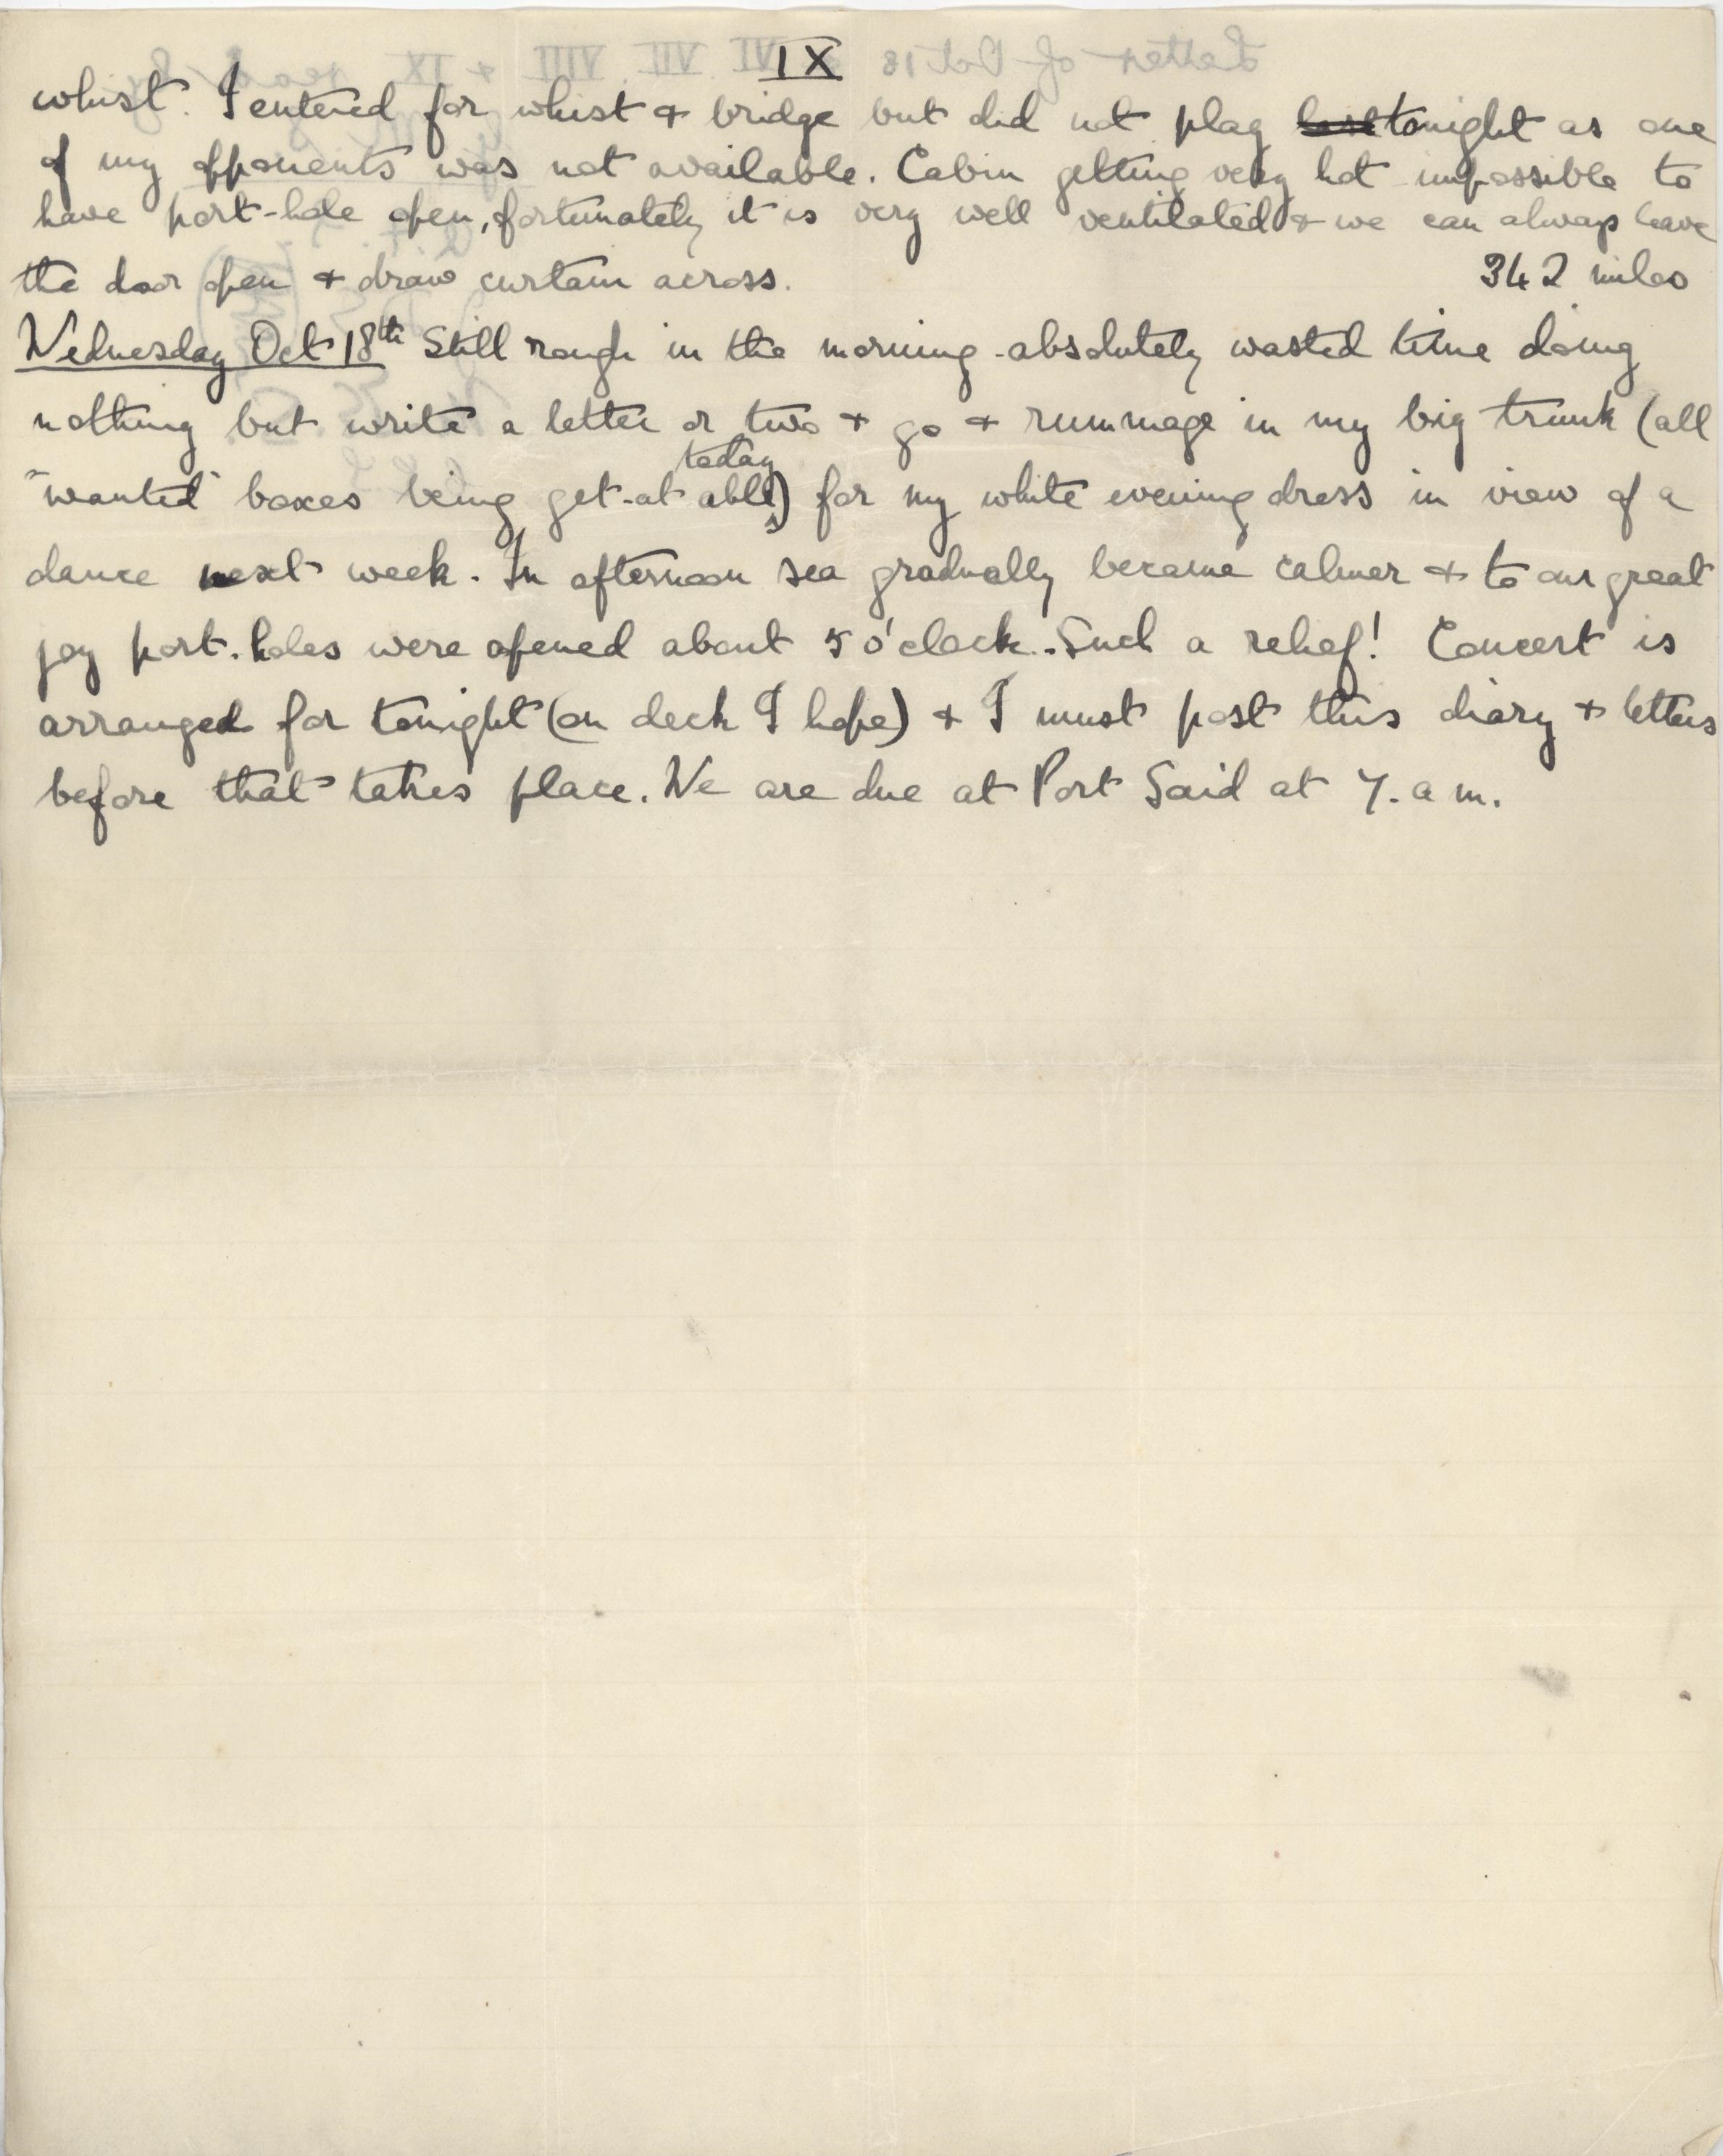 IX
whist. I entered for whist & bridge but did not play tonight as one
of my opponents was not available. Cabin getting very hot impossible to
have port-hole open, fortunately it is very well ventilated & we can always leave
the door open & draw curtain across. 342 miles
Wednesday Oct 18th Still rough in the morning - absolutely wasted time doing
nothing but write a letter or two & go & rummage in my big trunk (all
today
"wanted" boxes being get-at able) for my white evening dress in view of a
dance next week. In afternoon sea gradually became calmer & to our great
joy port-holes were opened about 5 o'clock. Such a relief! Concert is
arranged for tonight (on deck I hope) & I must post this diary & letters
before that takes place. We are due at Port Said at 7. a m.